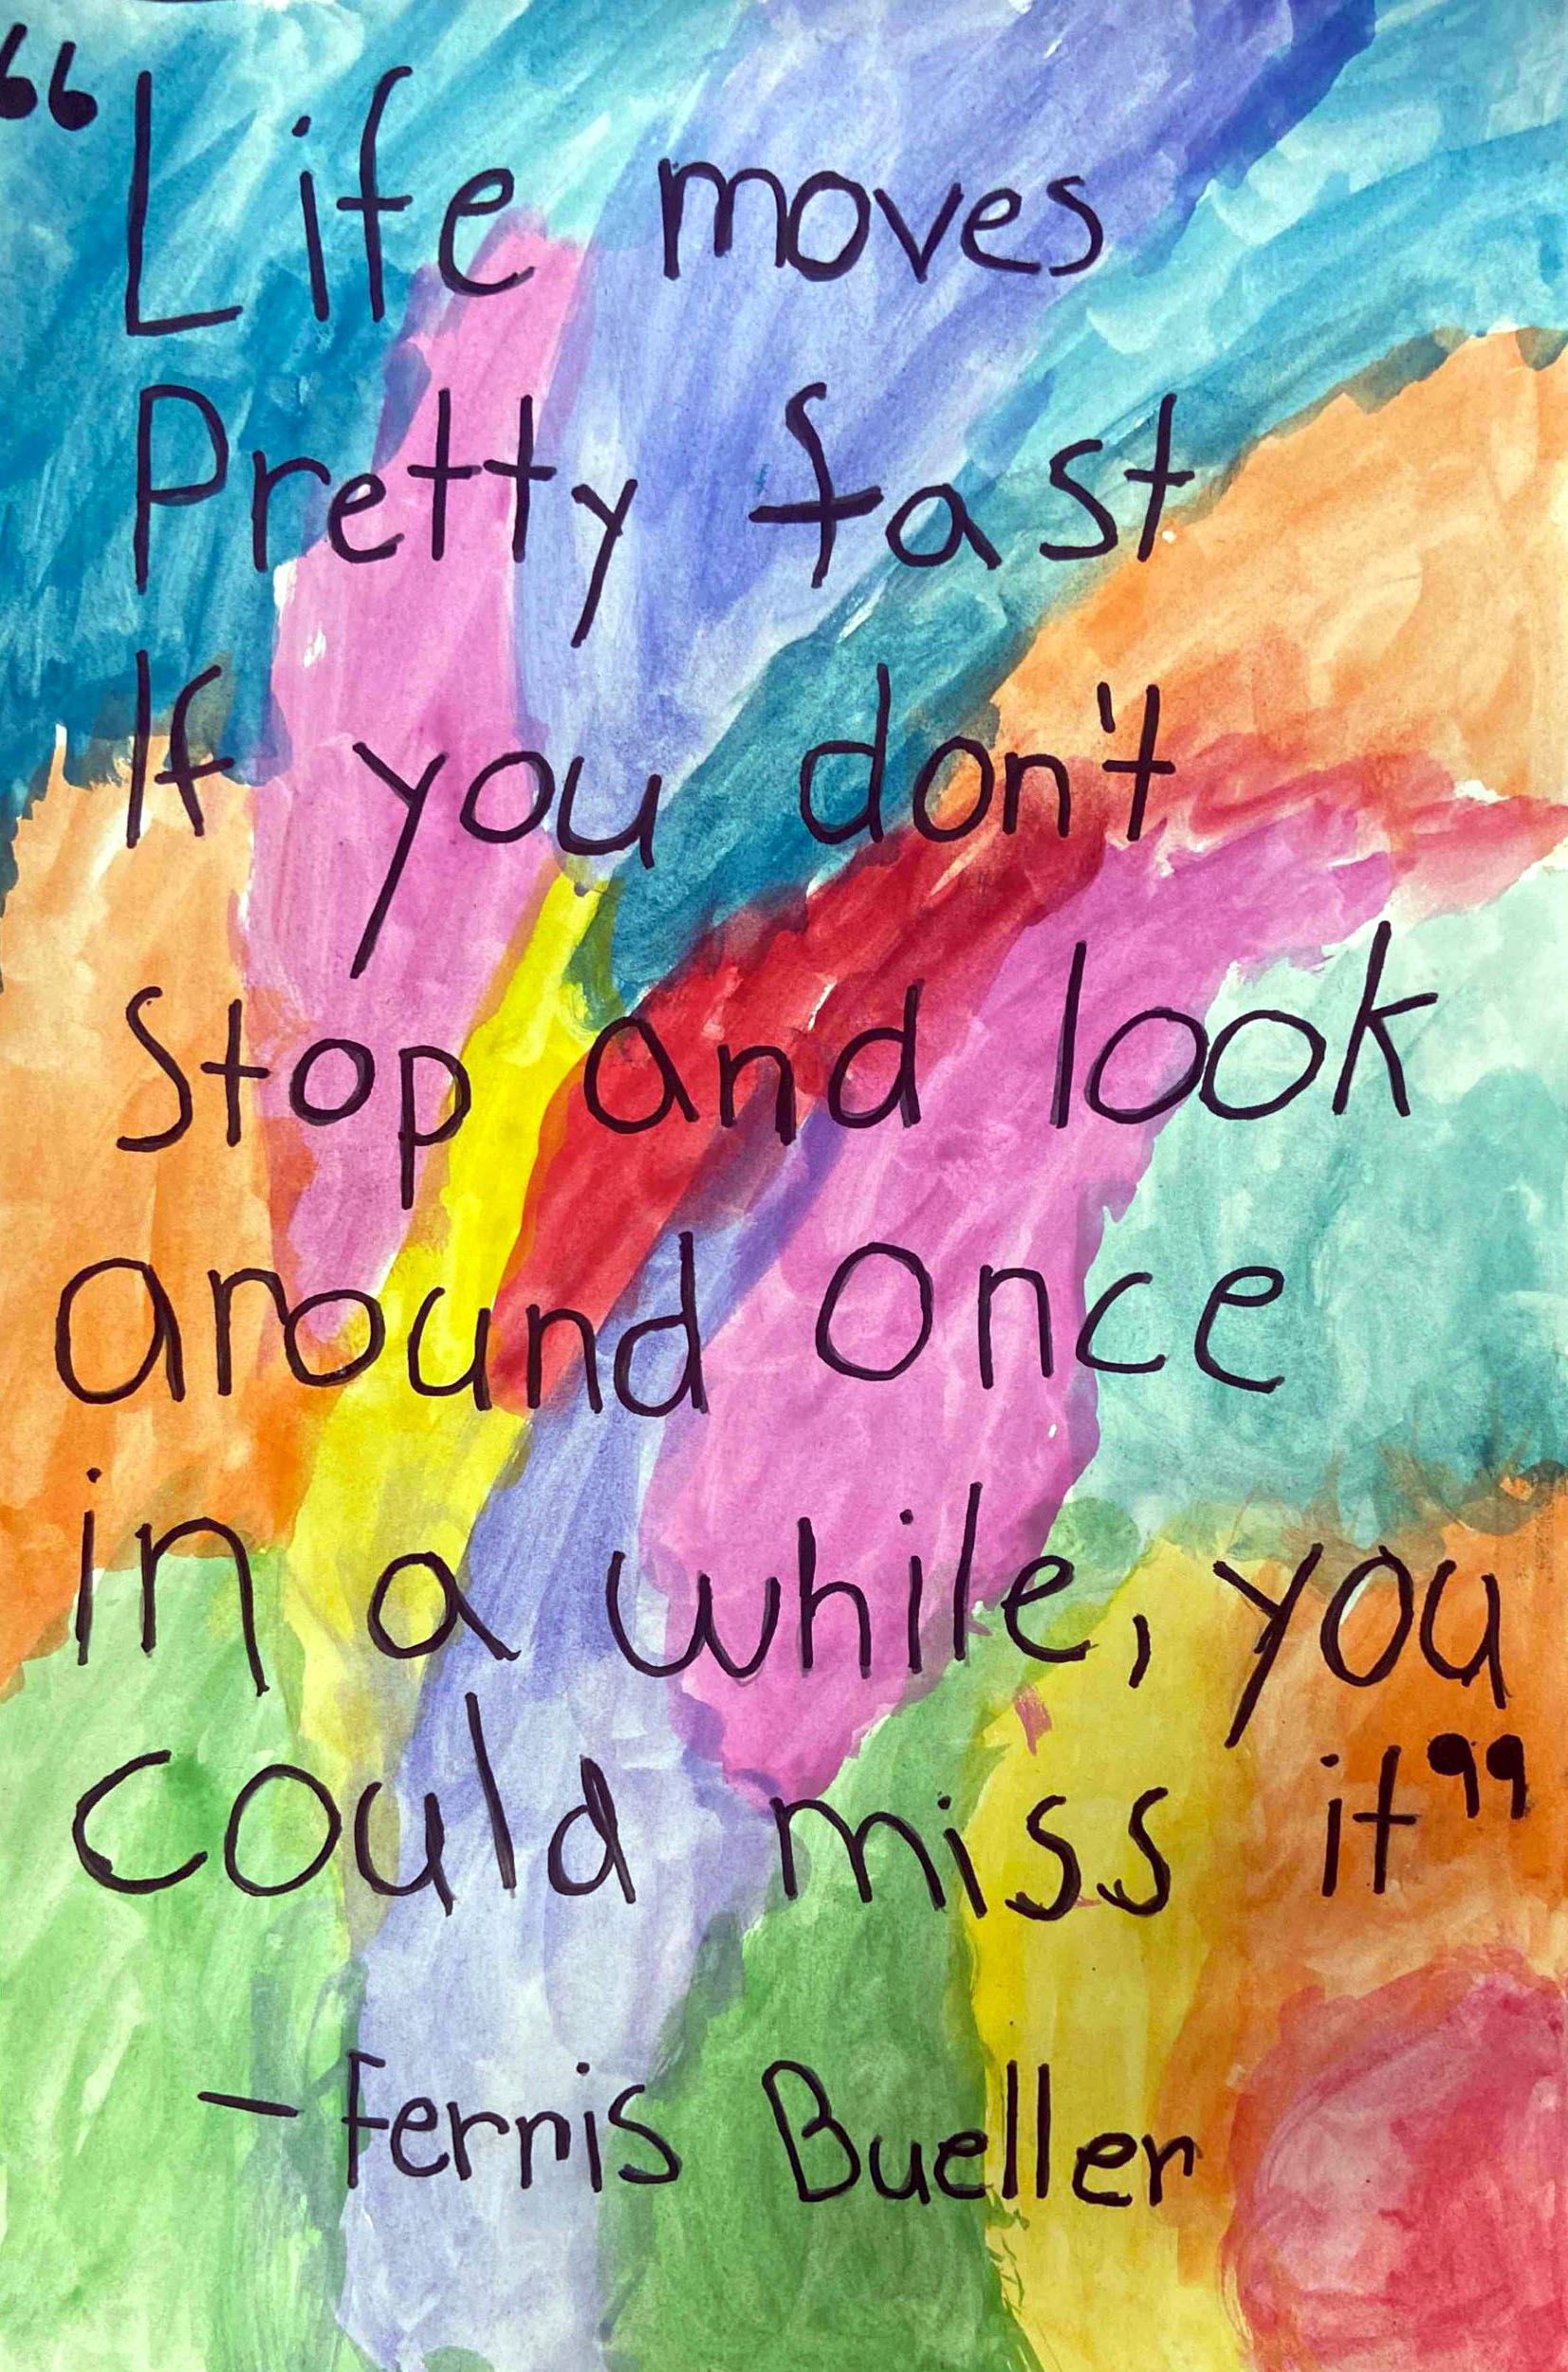 “Life moves
Pretty fast
If you don't
Stop and look
around once
in a while, you
could miss it”
-Ferris Bueller